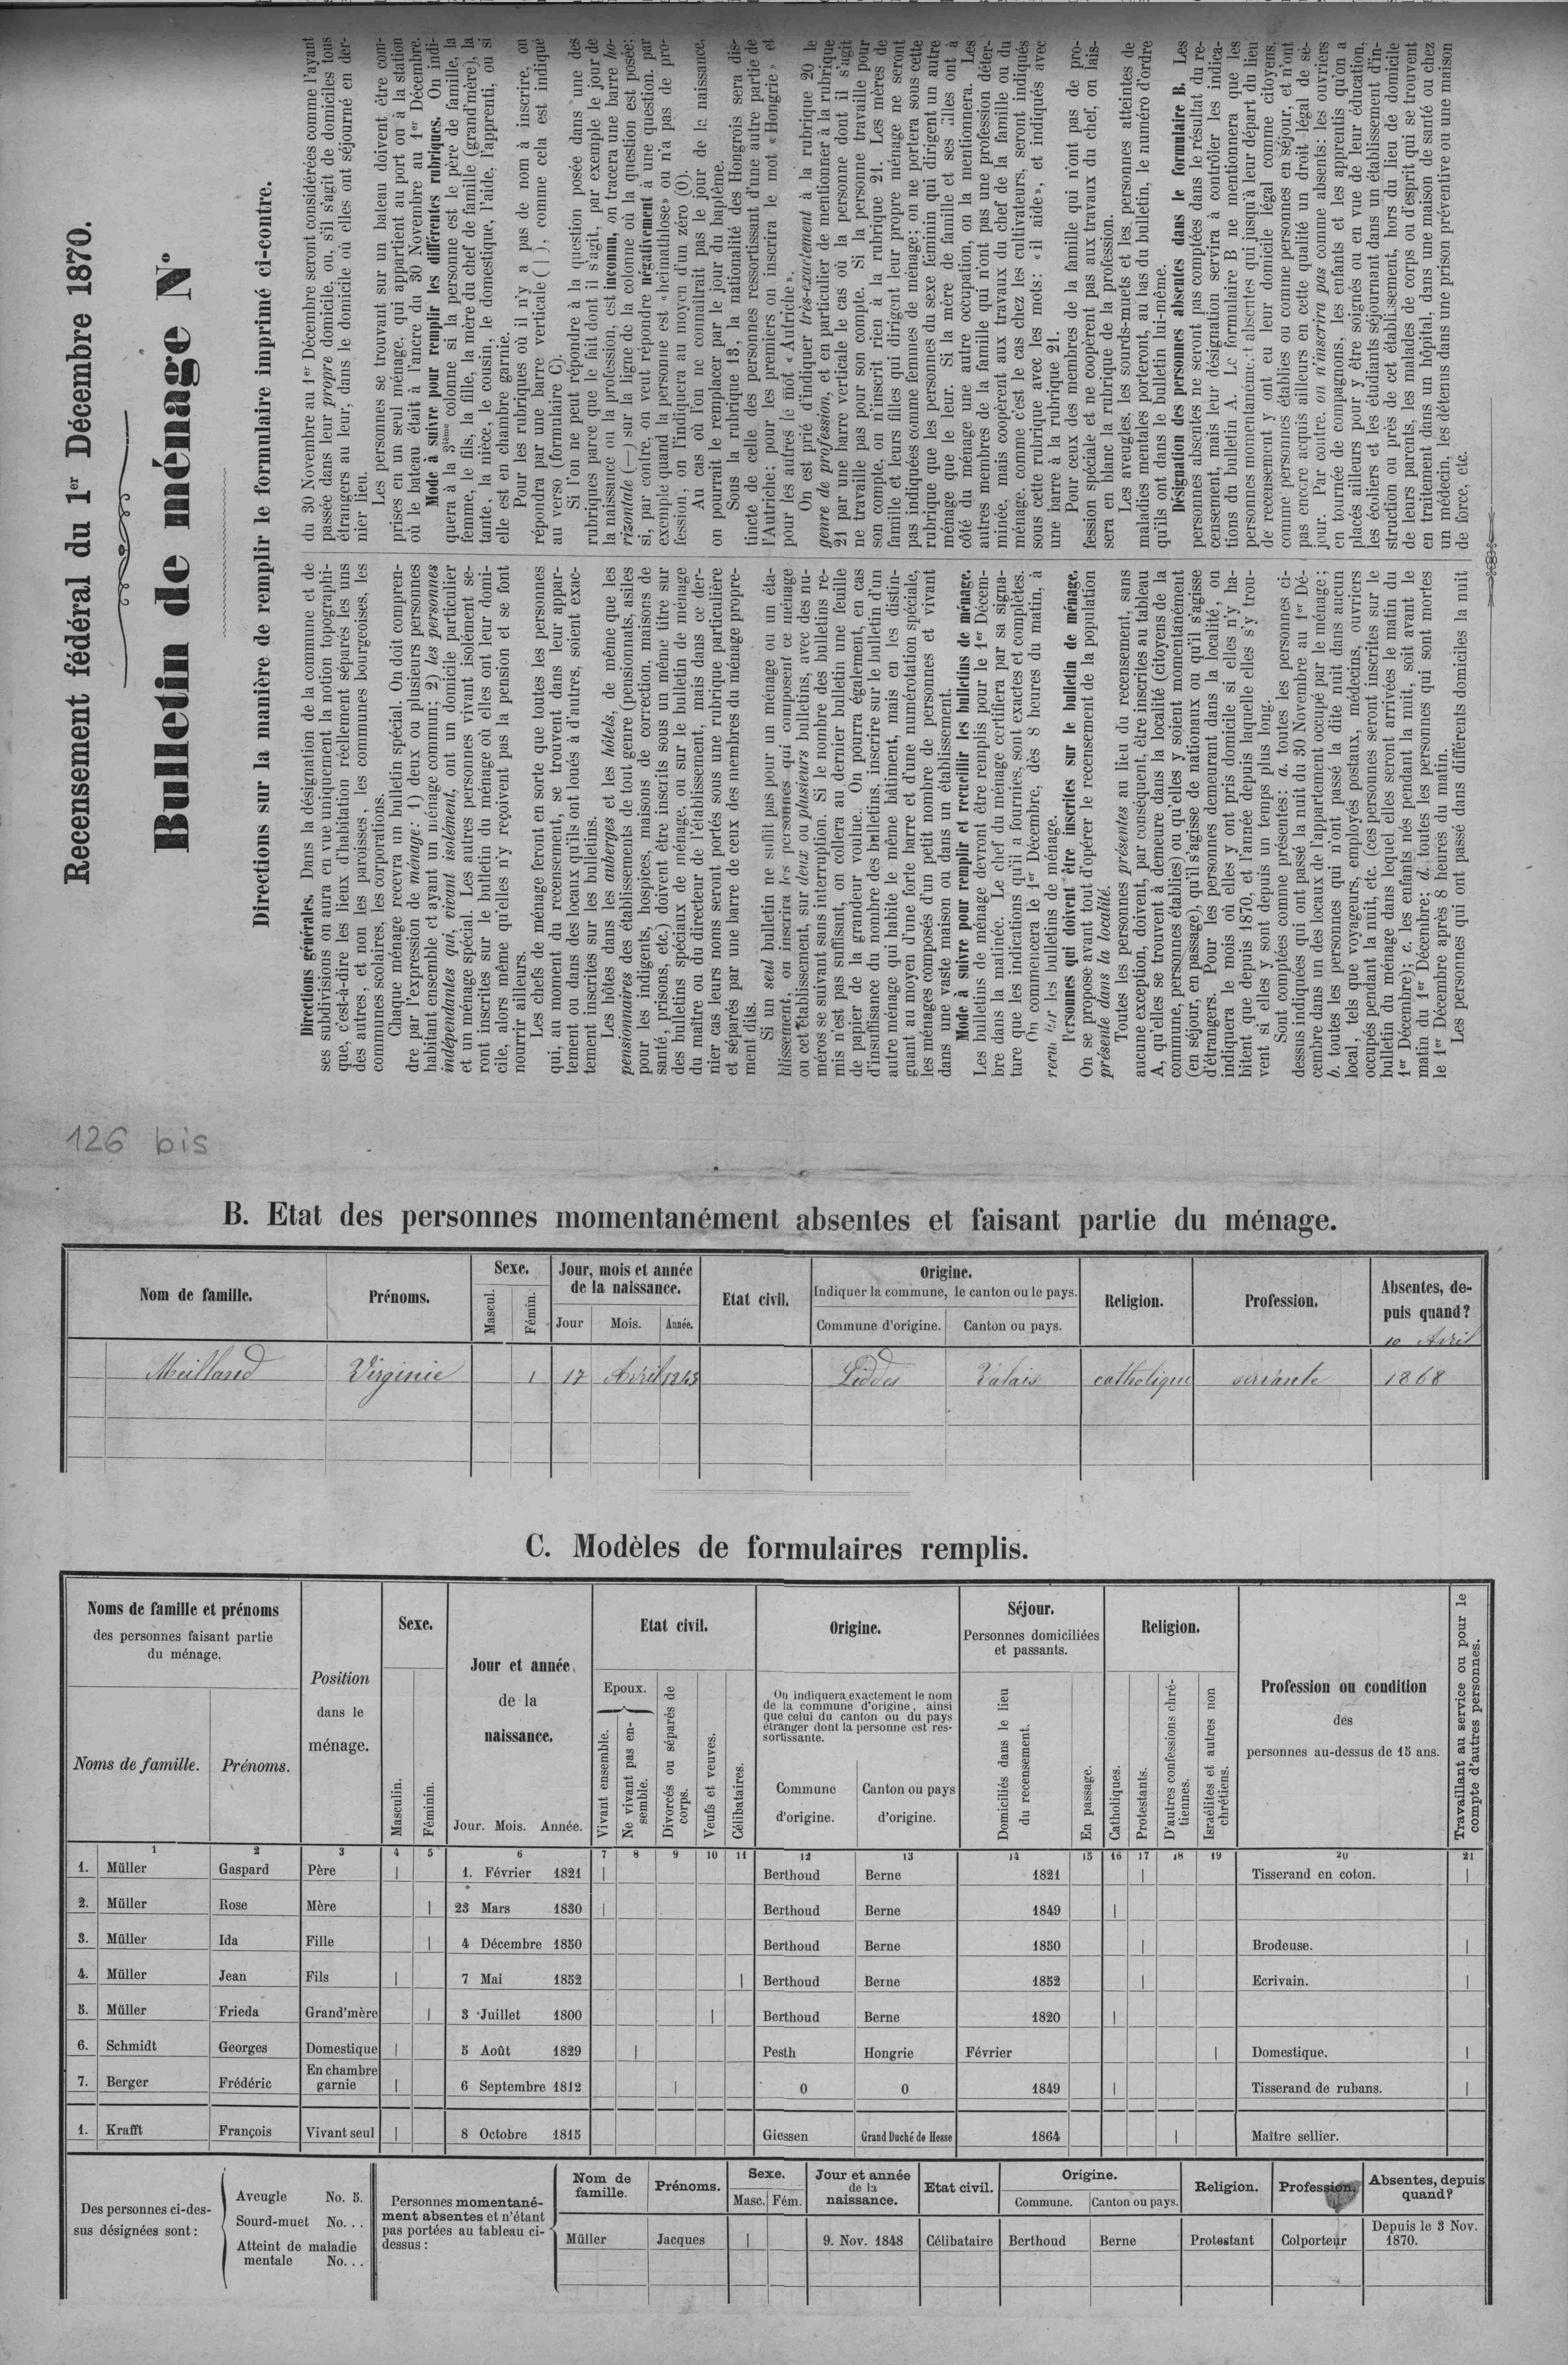 Recensement fédéral du 1er Décembre 1870.
Bulletin de ménage No
Directions sur la manière de remplir le formulaire imprimé ci-contre.
Directions générales. Dans la désignation de la commune et de
ses subdivisions on aura en vue uniquement la notion topographi-
que, c'est-à-dire les lieux d'habitation réellement séparés les uns
des autres, et non les paroisses, les communes bourgeoises, les
communes scolaires, les corporations.
Chaque ménage recevra un bulletin spécial. On doit compren-
dre par l'expression de ménage: 1) deux ou plusieurs personnes
habitant ensemble et ayant un ménage commun; 2) les personnes
indépendantes qui, vivant isolément, ont un domicile particulier
et un ménage spécial. Les autres personnes vivant isolément se-
ront inscrites sur le bulletin du ménage où elles ont leur domi-
cile, alors même qu'elles n'y reçoivent pas la pension et se font
nourrir ailleurs.
Les chefs de ménage feront en sorte que toutes les personnes
qui, au moment du recensement, se trouvent dans leur appar-
tement ou dans des locaux qu'ils ont loués à d'autres, soient exac-
tement inscrites sur les bulletins.
Les hôtes dans les auberges et les hôtels, de même que les
pensionnaires des établissements de tout genre (pensionnats, asiles
pour les indigents, hospices, maisons de correction, maisons de
santé, prisons, etc.) doivent être inscrits sous un même titre sur
des bulletins spéciaux de ménage, ou sur le bulletin de ménage
du maître ou du directeur de l'établissement, mais dans ce der-
nier cas leurs noms seront portés sous une rubrique particulière
et séparés par une barre de ceux des membres du ménage propre-
ment dits.
Si un seul bulletin ne suffit pas pour un ménage ou un éta-
blissement, on inscrira les personnes qui composent ce ménage
ou cet établissement, sur deux ou plusieurs bulletins, avec des nu-
méros se suivant sans interruption. Si le nombre des bulletins re-
mis n'est pas suffisant, on collera au dernier bulletin une feuille
de papier de la grandeur voulue. On pourra également, en cas
d'insuffisance du nombre des bulletins, inscrire sur le bulletin d'un
autre ménage qui habite le même bâtiment, mais en les distin-
guant au moyen d'une forte barre et d'une numérotation spéciale,
les ménages composés d'un petit nombre de personnes et vivant
dans une vaste maison ou dans un établissement.
Mode à suivre pour remplir et recueillir les bulletins de ménage.
Les bulletins de ménage devront être remplis pour le 1er Décem-
bre dans la matinée. Le chef du ménage certifiera par sa signa-
ture que les indications qu'il a fournies, sont exactes et complètes.
On commencera le 1er Décembre, dès 8 heures du matin, à
recueillir les bulletins de ménage.
Personnes qui doivent être inscrites sur le bulletin de ménage.
On se propose avant tout d'opérer le recensement de la population
présente dans la localité.
Toutes les personnes présentes au lieu du recensement, sans
aucune exception, doivent, par conséquent, être inscrites au tableau
A, qu'elles se trouvent à demeure dans la localité (citoyens de la
commune, personnes établies) ou qu'elles y soient momentanément
(en séjour, en passage), qu'il s'agisse de nationaux ou qu'il s'agisse
d'étrangers. Pour les personnes demeurant dans la localité, on
indiquera le mois où elles y ont pris domicile si elles n'y ha-
bitent que depuis 1870, et l'année depuis laquelle elles s'y trou-
vent si elles y sont depuis un temps plus long.
Sont comptées comme présentes: a. toutes les personnes ci-
dessus indiquées qui ont passé la nuit du 30 Novembre au 1er Dé-
cembre dans un des locaux de l'appartement occupé par le ménage;
b. toutes les personnes qui n'ont passé la dite nuit dans aucun
local, tels que voyageurs, employés postaux, médecins, ouvriers
occupés pendant la nuit, etc. (ces personnes seront inscrites sur le
bulletin du ménage dans lequel elles seront arrivées le matin du
1er Décembre); c. les enfants nés pendant la nuit, soit avant le
matin du 1er Décembre; d. toutes les personnes qui sont mortes
le 1er Décembre après 8 heures du matin.
Les personnes qui ont passé dans différents domiciles la nuit
du 30 Novembre au 1er Décembre seront considérées comme l'ayant
passée dans leur propre domicile, ou, s'il s'agit de domiciles tous
étrangers au leur, dans le domicile où elles ont séjourné en der-
nier lieu.
Les personnes se trouvant sur un bateau doivent être com-
prises en un seul ménage, qui appartient au port ou à la station
où le bateau était à l'ancre du 30 Novembre au 1er Décembre.
Mode à suivre pour remplir les différentes rubriques. On indi-
quera à la 3ième colonne si la personne est le père de famille, la
femme, le fils, la fille, la mère du chef de famille (grand'mère), la
tante, la nièce, le cousin, le domestique, l'aide, l'apprenti, ou si
elle est en chambre garnie.
Pour les rubriques où il n'y a pas de nom à inscrire, on
répondra par une barre verticale (|), comme cela est indiqué
au verso (formulaire C).
Si l'on ne peut répondre à la question posée dans une des
rubriques parce que le fait dont il s'agit, par exemple le jour de
la naissance ou la profession, est inconnu, on tracera une barre ho-
rizontale (—) sur la ligne de la colonne où la question est posée;
si, par contre, on veut répondre négativement à une question, par
exemple quand la personne est «heimathlose» ou n'a pas de pro-
fession, on l'indiquera au moyen d'un zéro (0).
Au cas où l'on ne connaîtrait pas le jour de la naissance,
on pourrait le remplacer par le jour du baptême.
Sous la rubrique 13, la nationalité des Hongrois sera dis-
tincte de celle des personnes ressortissant d'une autre partie de
l'Autriche; pour les premiers on inscrira le mot «Hongrie» et
pour les autres le mot «Autriche».
On est prié d'indiquer très-exactement à la rubrique 20 le
genre de profession, et en particulier de mentionner à la rubrique
21 par une barre verticale le cas où la personne dont il s'agit
ne travaille pas pour son compte. Si la personne travaille pour
son compte, on n'inscrit rien à la rubrique 21. Les mères de
famille et leurs filles qui dirigent leur propre ménage ne seront
pas indiquées comme femmes de ménage; on ne portera sous cette
rubrique que les personnes du sexe féminin qui dirigent un autre
ménage que le leur. Si la mère de famille et ses filles ont à
côté du ménage une autre occupation, on la mentionnera. Les
autres membres de la famille qui n'ont pas une profession déter-
minée, mais coopèrent aux travaux du chef de la famille ou du
ménage, comme c'est le cas chez les cultivateurs, seront indiqués
sous cette rubrique avec les mots: «il aide», et indiqués avec
une barre à la rubrique 21.
Pour ceux des membres de la famille qui n'ont pas de pro-
fession spéciale et ne coopèrent pas aux travaux du chef, on lais-
sera en blanc la rubrique de la profession.
Les aveugles, les sourds-muets et les personnes atteintes de
maladies mentales porteront, au bas du bulletin, le numéro d'ordre
qu'ils ont dans le bulletin lui-même.
Désignation des personnes absentes dans le formulaire B. Les
personnes absentes ne seront pas comptées dans le résultat du re-
censement, mais leur désignation servira à contrôler les indica-
tions du bulletin A. Le formulaire B ne mentionnera que les
personnes momentanément absentes qui jusqu'à leur départ du lieu
de recensement y ont eu leur domicile légal comme citoyens,
comme personnes établies ou comme personnes en séjour, et n'ont
pas encore acquis ailleurs en cette qualité un droit légal de sé-
jour. Par contre, on n'inscrira pas comme absents: les ouvriers
en tournée de compagnons, les enfants et les apprentis qu'on a
placés ailleurs pour y être soignés ou en vue de leur éducation,
les écoliers et les étudiants séjournant dans un établissement d'in-
struction ou près de cet établissement, hors du lieu de domicile
de leurs parents, les malades de corps ou d'esprit qui se trouvent
en traitement dans un hôpital, dans une maison de santé ou chez
un médecin, les détenus dans une prison préventive ou une maison
de force, etc.
126 bis
B. Etat des personnes momentanément absentes et faisant partie du ménage.
Nom de famille. Prénoms. Sexe. Mascul. Fémin. Jour, mois et année de la naissance. Jour Mois. Année. Etat civil. Origine. Indiquer la commune, le canton ou le pays. Commune d'origine. Canton ou pays. Religion. Profession. Absentes, de-puis quand?
10 Avril
Meilland Virginie 1 17 Avril 1843 Liddes Valais catholique servante 1868
C. Modèles de formulaires remplis.
Noms de famille et prénoms
des personnes faisant partie
du ménage.
Noms de famille. Prénoms.
Position
dans le
ménage.
Sexe.
Masculin.
Féminin.
Jour et année
de la
naissance.
Jour. Mois. Année.
Etat civil.
Epoux.
Vivant ensemble.
Ne vivant pas en-
semble.
Divorcés ou séparés de
corps.
Veufs et veuves.
Célibataires.
Origine.
On indiquera exactement le nom
de la commune d'origine, ainsi
que celui du canton ou du pays
étranger dont la personne est res-
sortissante.
Commune
d'origine.
Canton ou pays
d'origine.
Séjour.
Personnes domiciliées
et passants.
Domiciliés dans le lieu
du recensement.
En passage.
Religion.
Catholiques.
Protestants.
D'autres confessions chré-
tiennes.
Israélites et autres non
chrétiens.
Profession ou condition
des
personnes au-dessus de 15 ans.
Travaillant au service ou pour le
compte d'autres personnes.
1 2 3 4 5 6 7 8 9 10 11 12 13 14 15 16 17 18 19 20 21
1. Müller Gaspard Père | 1. Février 1821 | Berthoud Berne 1821 | Tisserand en coton. |
2. Müller Rose Mère | 23 Mars 1830 | Berthoud Berne 1849 |
3. Müller Ida Fille | 4 Décembre 1850 Berthoud Berne 1850 | Brodeuse. |
4. Müller Jean Fils | 7 Mai 1852 | Berthoud Berne 1852 | Ecrivain. |
5. Müller Frieda Grand'mère | 3 Juillet 1800 | Berthoud Berne 1820 |
6. Schmidt Georges Domestique | 5 Août 1829 | Pesth Hongrie Février | Domestique. |
7. Berger Frédéric En chambre garnie | 6 Septembre 1812 | 0 0 1849 | Tisserand de rubans. |
1. Krafft François Vivant seul | 8 Octobre 1815 Giessen Grand Duché de Hesse 1864 | Maître sellier.
Des personnes ci-des-
sus désignées sont:
Aveugle No. 5.
Sourd-muet No. . .
Atteint de maladie
mentale No. . .
Personnes momentané-
ment absentes et n'étant
pas portées au tableau ci-
dessus:
Nom de famille. Prénoms. Sexe. Masc. Fém. Jour et année de la naissance. Etat civil. Origine. Commune. Canton ou pays. Religion. Profession. Absentes, depuis quand?
Müller Jacques | 9. Nov. 1848 Célibataire Berthoud Berne Protestant Colporteur Depuis le 3 Nov. 1870.